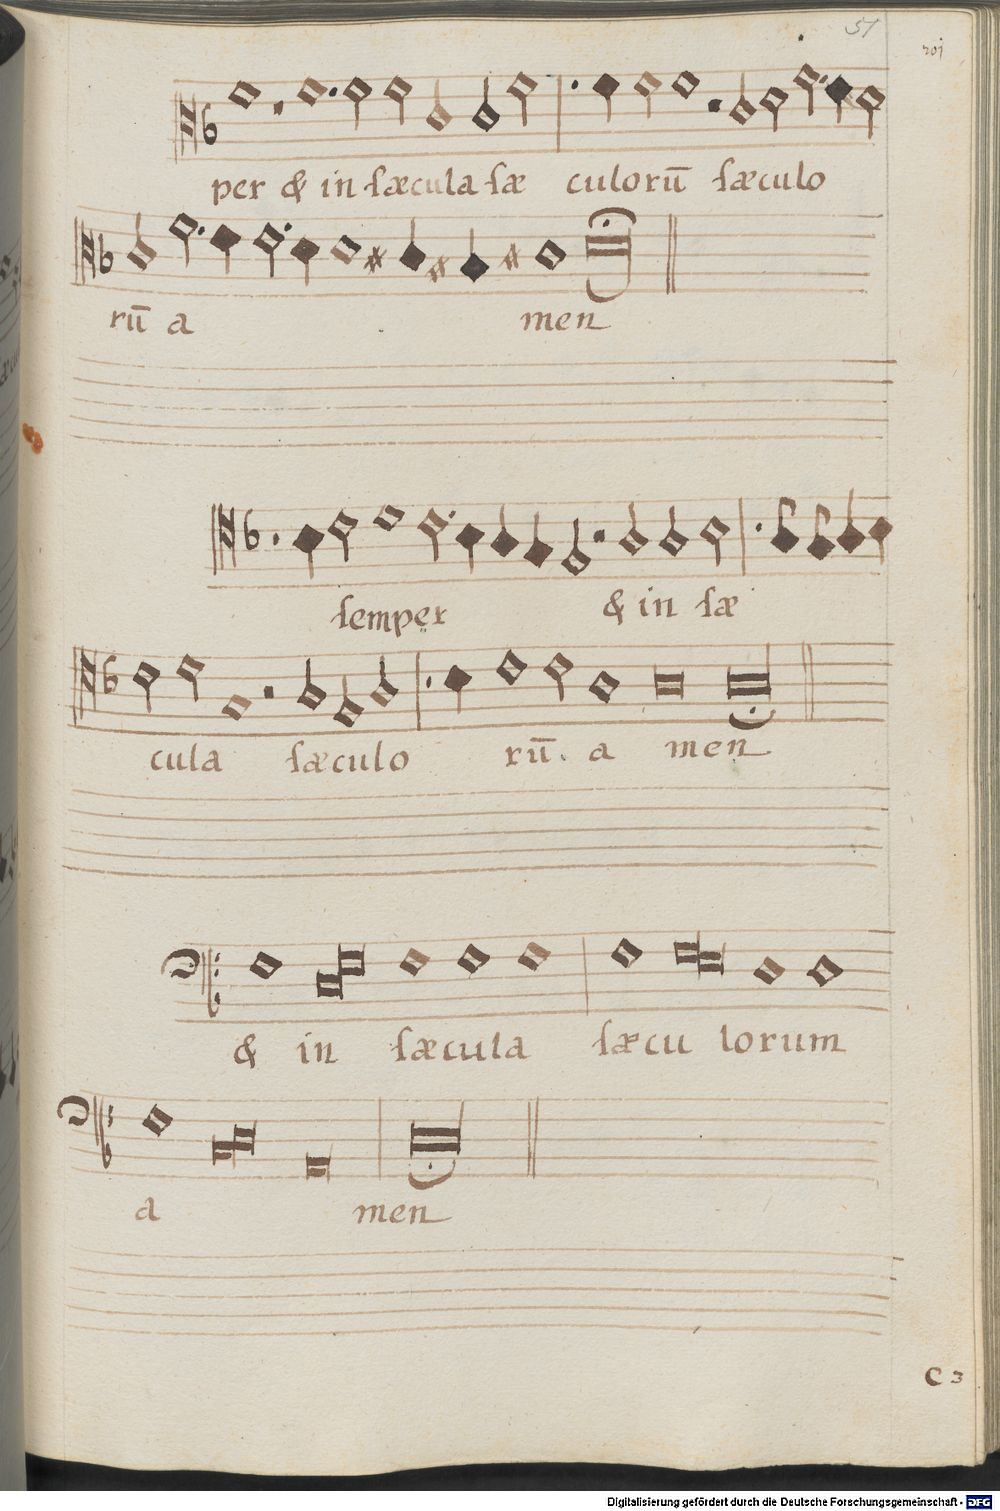 51
per & in sæcula sæ culorū sæculo
rū a men
semper & in sæ
cula sæculo rū. a men
& in sæcula sæcu lorum
a men
C 3
Digitalisierung gefördert durch die Deutsche Forschungsgemeinschaft - DFG